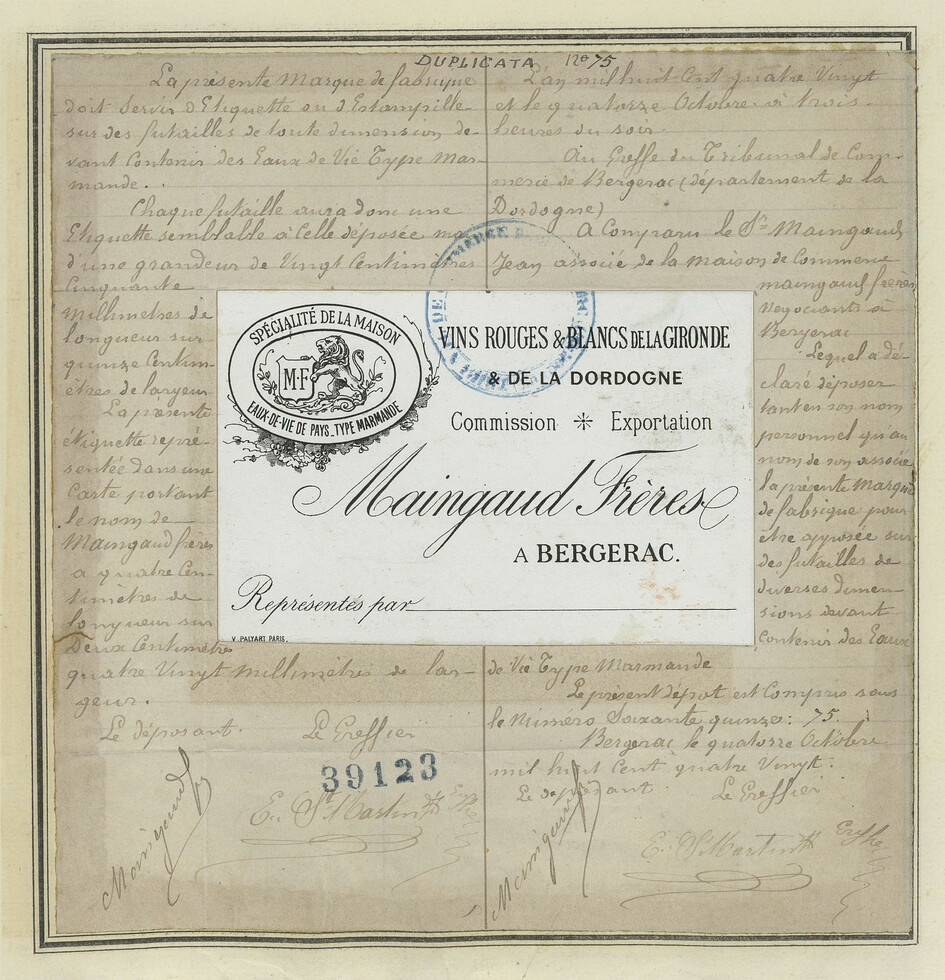 DUPLICATA No 75
La présente Marque de fabrique
doit Servir d'Etiquette ou d'Estampille
sur des futailles de toute dimension de-
vant Contenir des Eaux de Vie Type Mar-
mande..
Chaque futaille aura donc une
Etiquette semblable à Celle déposée
d'une grandeur de Vingt Centimètres
Cinquante
Millimètres de
longueur sur
quinze Centim-
ètres de largeur
La présente
étiquette repré-
sentée dans une
Carte portant
le nom de
Maingaud frères
a quatre Cen-
timètres de
longueur sur
Deux Centimètres
quatre Vingt millimètres de lar-
geur.
Le déposant. Le Greffier
Maingaud
E. St Martin
39123
L'an mil huit Cent quatre Vingt
et le quatorze Octobre à trois
heures du soir
Au Greffe du Tribunal de Com-
merce de Bergerac (département de la
Dordogne)
A Comparu le Sr Maingaud
Jean associé de la maison de Commerce
maingaud frères
Negociants à
Bergerac
Lequel a dé-
claré déposer
tant en son nom
personnel qu'au
nom de son associé
la présente Marque
de fabrique pour
être apposée sur
des futailles de
diverses dimen-
sions devant
Contenir des Eaux
de Vie Type Marmande
Le présent dépôt est Compris sous
le Numéro Soixante quinze: 75
Bergerac le quatorze Octobre
mil huit Cent quatre Vingt:
Le déposant Le Greffier
Maingaud
E. St Martin
SPÉCIALITÉ DE LA MAISON
M·F
EAUX-DE-VIE DE PAYS_TYPE MARMANDE
VINS ROUGES & BLANCS DE LA GIRONDE
& DE LA DORDOGNE
Commission * Exportation
Maingaud Frères
A BERGERAC.
Représentés par
V. PALYART PARIS.